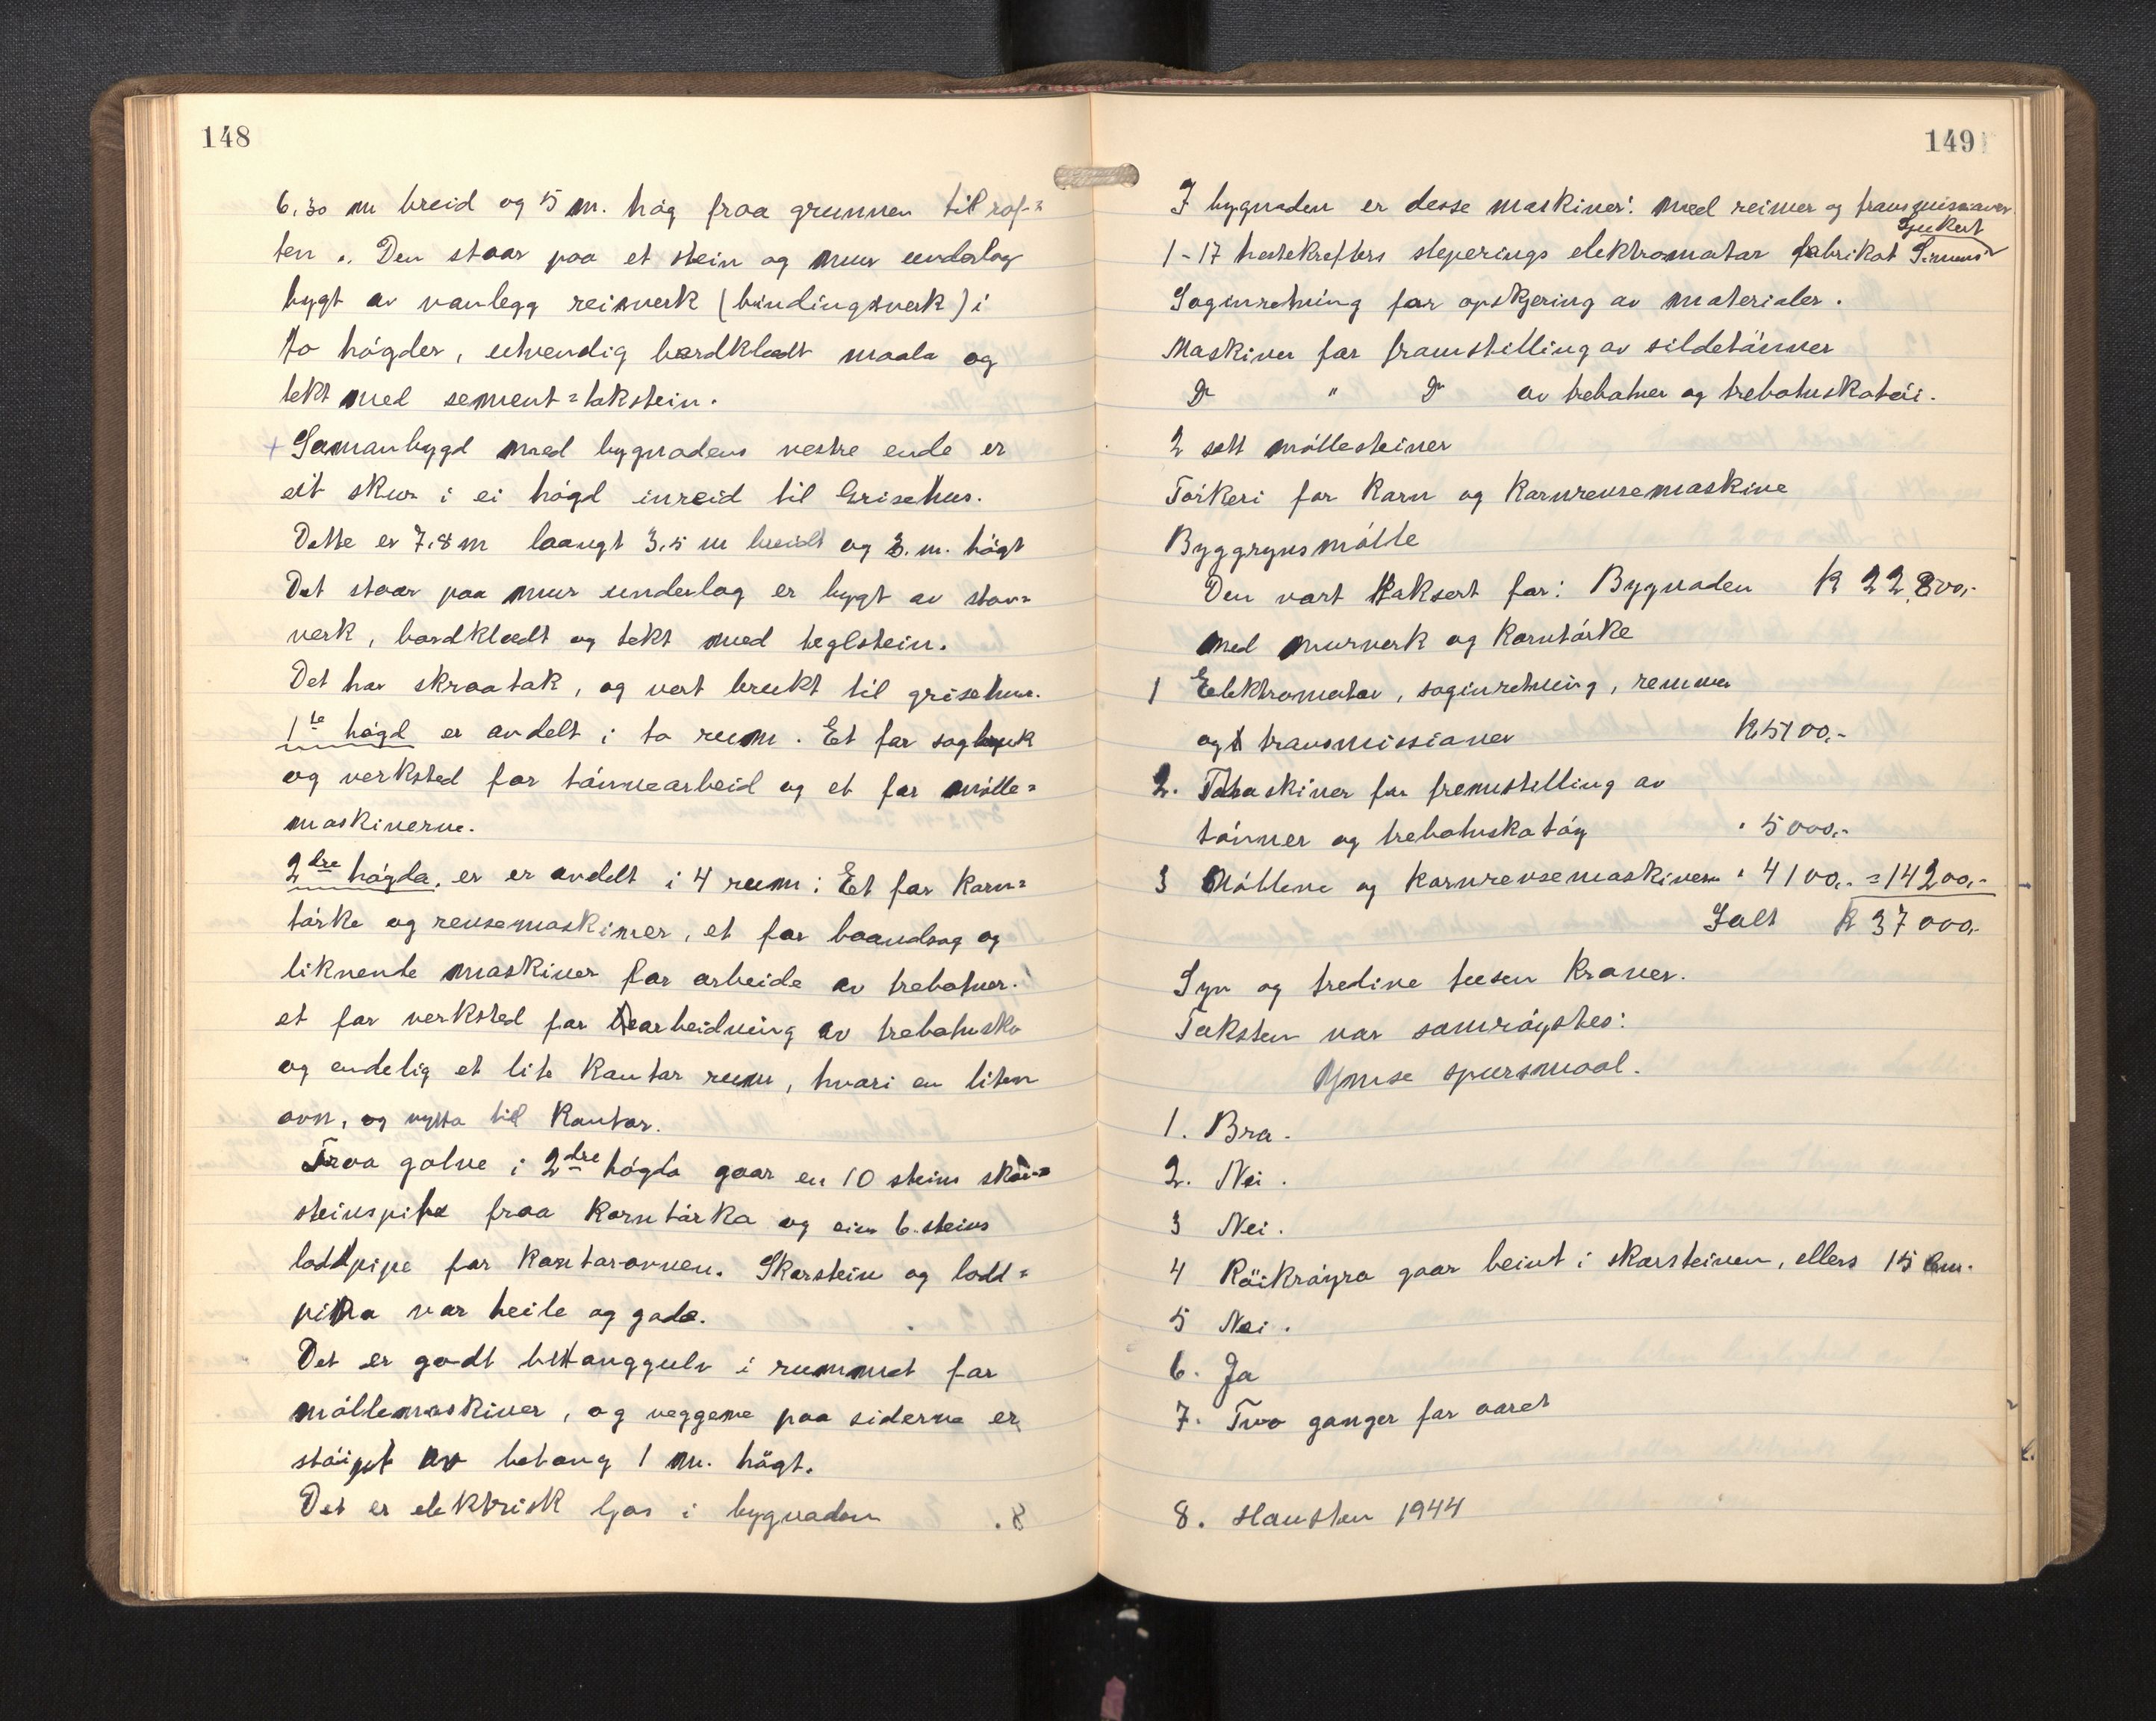 148
6.30 m breid og 5 m. høg fraa grunnen til røf-
ten. Den staar paa et stein og mur underlag
bygt av vanlegg reisverk (bindingsverk) i
to høgder, utvendig bordkledt maala og
tekt med sement=takstein.
+ Samanbygd med bygnadens vestre ende er
eit skur i ei høgd inreid til Grisehus.
Dette er 7.8 m laangt 3.5 m breidt og 3. m. høgt
Det staar paa mur underlag er bygt av stav=
verk, bordklædt og tekt med teglstein.
Det har skraatak, og vert brukt til grisehus.
1te høgd er avdelt i to rum. Et for sagbruk
og verksted for tønnearbeid og et for mølle=
maskinerne.
2dre høgda, er er avdelt i 4 rum: Et for korn=
tørke og rensemaskiner, et for baandsag og
liknende maskiner for arbeide av trebotner.
et for verksted for bearbeidning av trebotnsko
og endelig et lite kontor rum, hvori en liten
ovn, og nytta til kontor.
Fraa golve i 2dre høgda gaar en 10 steins skor=
steinspipe fraa korntørka og ein 6. steins
loddpipe for kontorovnen. Skorstein og lodd=
pipa var heile og gode.
Det er godt betonggulv i rummet for
møllemaskiner, og veggene paa siderne er
støipt av betong 1 m. høgt.
Det er elektrisk ljos i bygnaden
8.
149
I bygnaden er desse maskiner: med reimer og transmisioner
Sjukert
1-17 hestekrefters sleperings elektromotor fabrikat Simens
Saginretning for opskjering av materialer.
Maskiner for framstilling av sildetønner
Do " Do av trebotner og trebotnskotøi.
2 sett møllesteiner
Tørkeri for korn og kornrensemaskine
Byggrynsmølle
Den vart taksert for: Bygnaden K 22,800,-
med murverk og korntørke
1 Elektromotor, saginretning, remmer
og transmissioner K 5100,-
2. Maskiner for fremstelling av
tønner og trebotnskotøy " 5000,-
3 Møllene og kornrensemaskinen " 4100,- =14200,-
Ialt K 37000,-
Syv og tredive tusen kroner.
Taksten var samrøystes:
Ymse spursmaal.
1. Bra.
2. Nei.
3 Nei.
4 Röikrøyra gaar beint i skorsteinen, ellers 15 cm.
5 Nei.
6. Ja
7. Tvo ganger for aaret
8. Hausten 1944